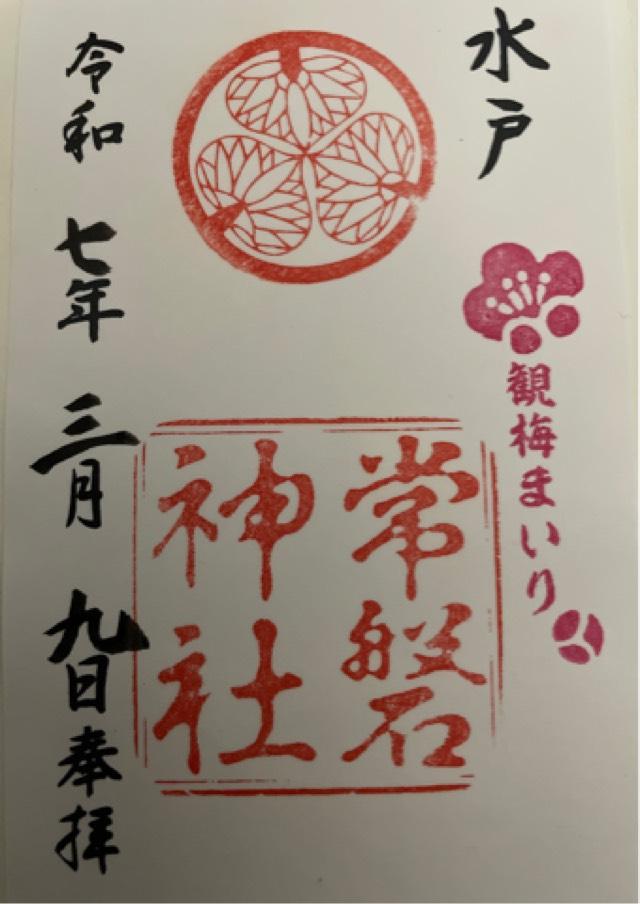 水戸
観梅まいり
常磐
神社
令和七年三月九日奉拝